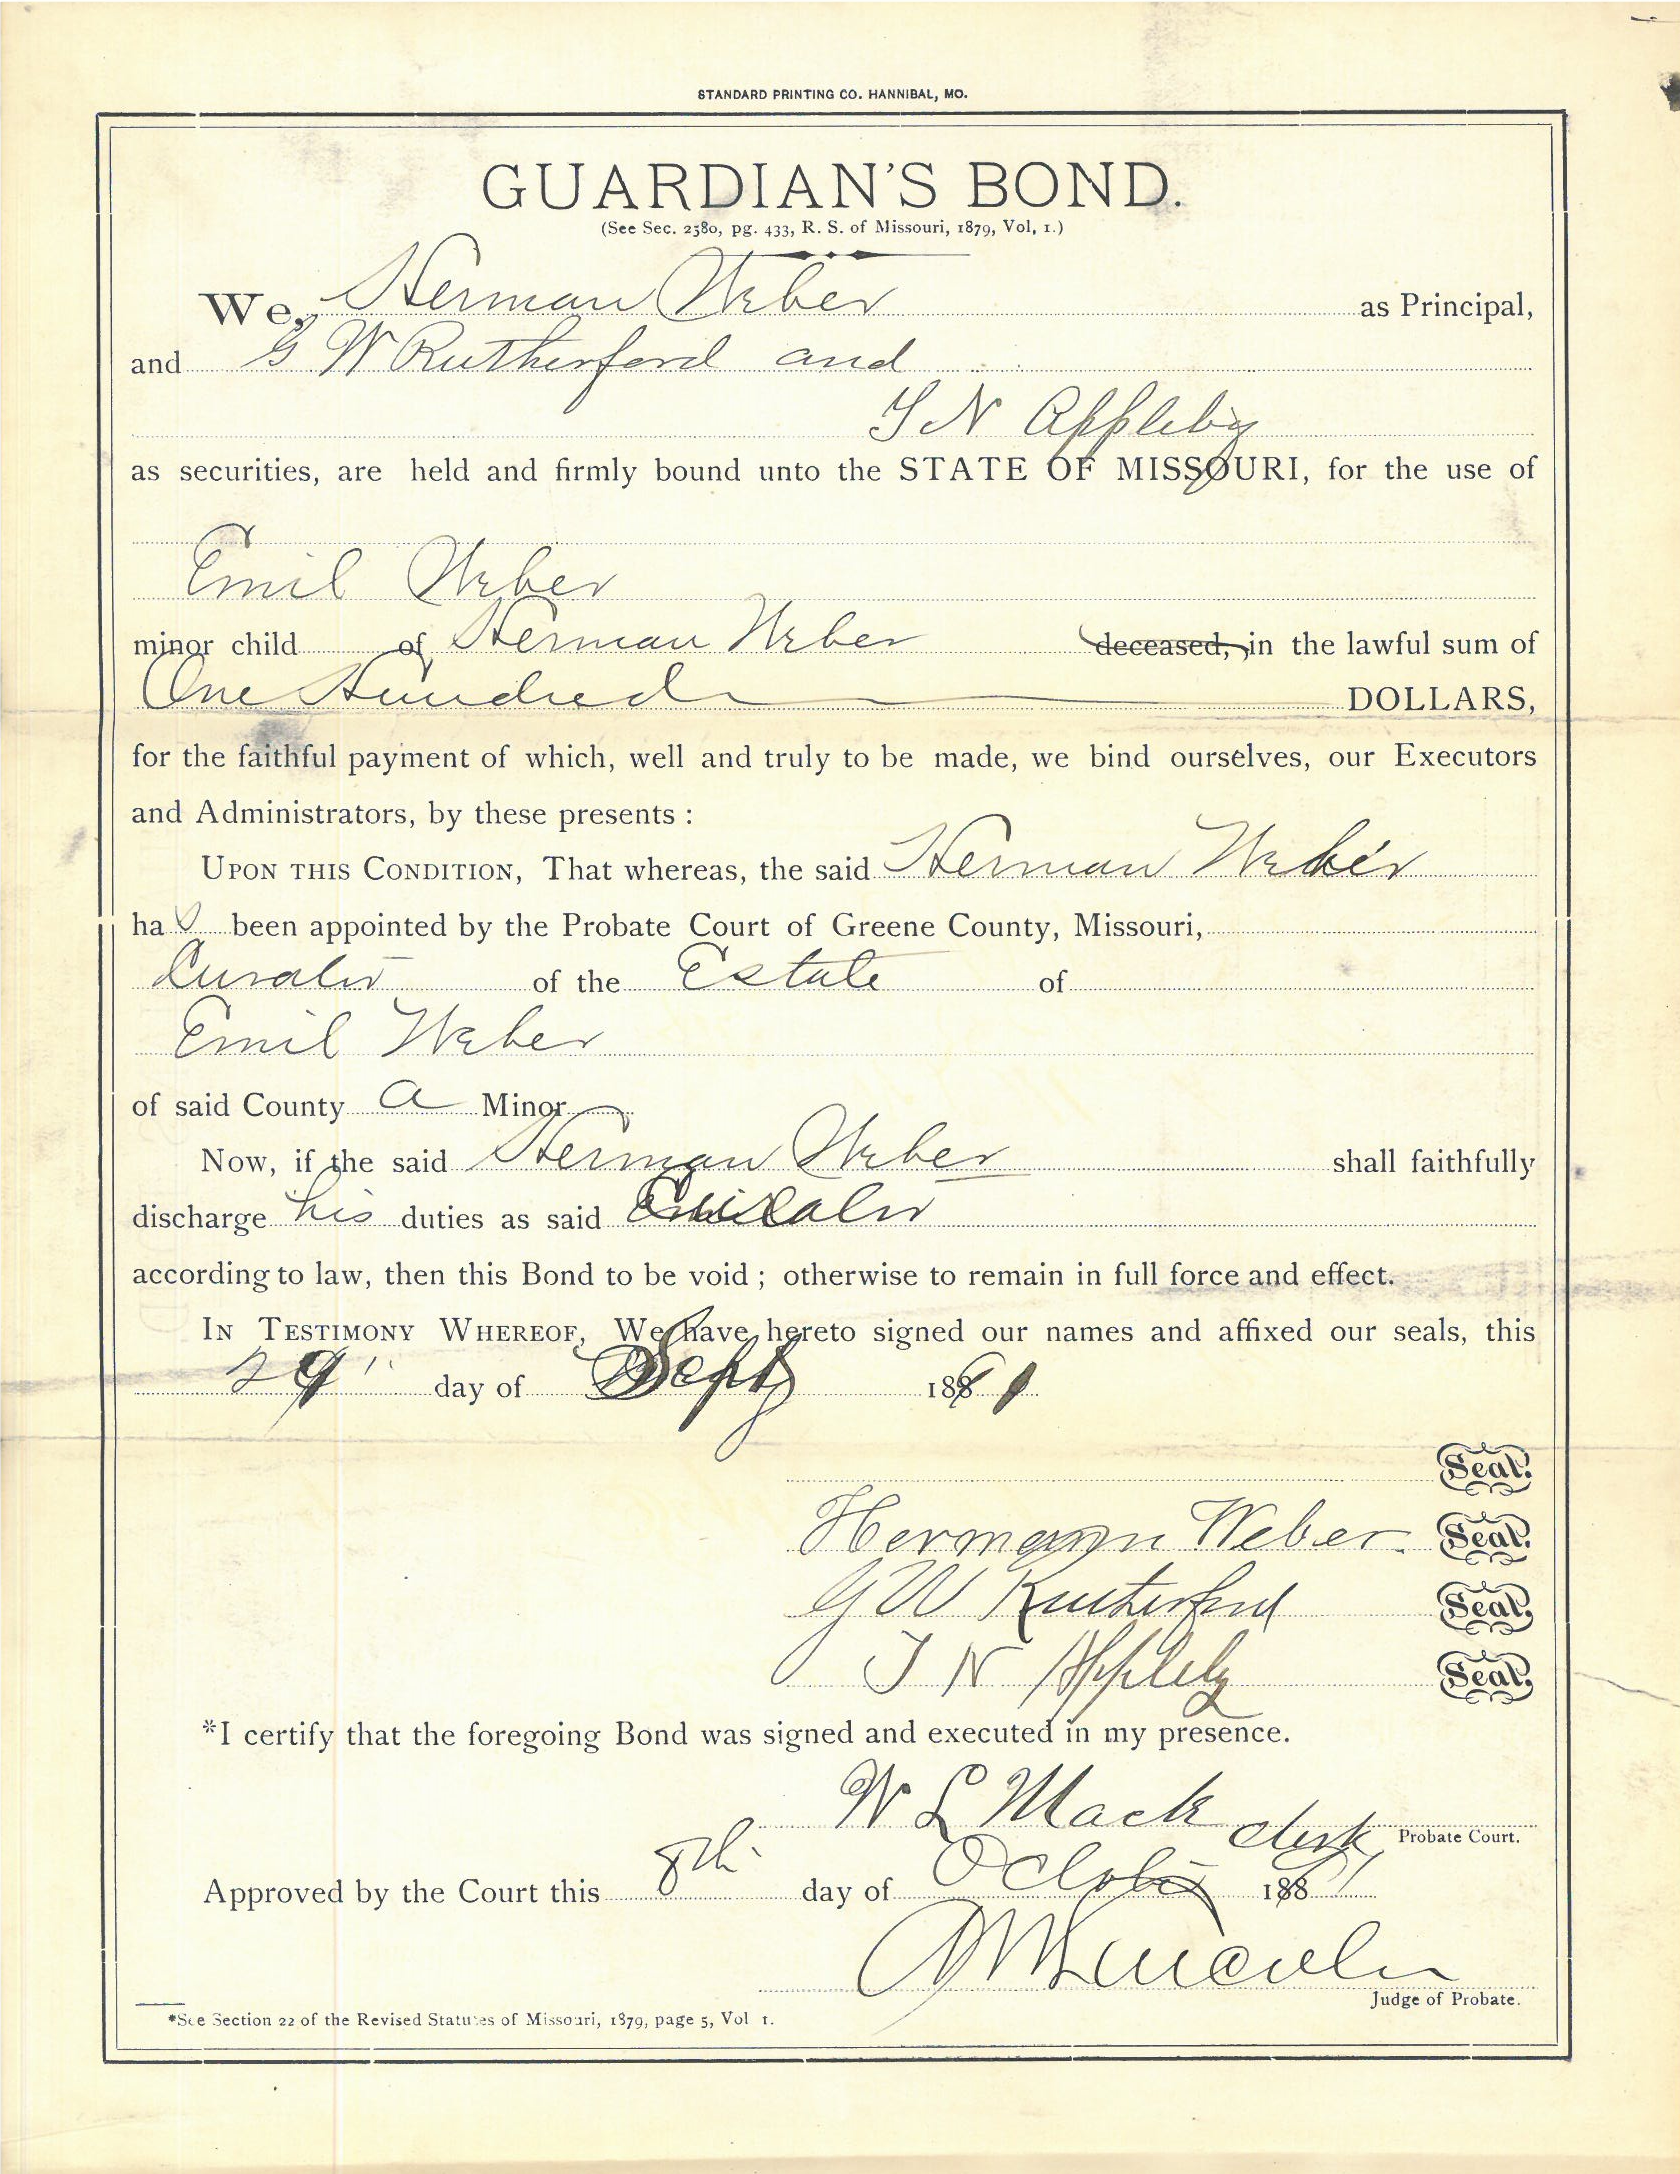 STANDARD PRINTING CO. HANNIBAL, MO.
GUARDIAN'S BOND.
(See Sec. 2580, pg. 433, R. S. of Missouri, 1879, Vol, 1.)
We, Herman Weber as Principal,
and G W Rutherford and
T N Appleby
as securities, are held and firmly bound unto the STATE OF MISSOURI, for the use of
Emil Weber
minor child of Herman Weber deceased, in the lawful sum of
One Hundred DOLLARS,
for the faithful payment of which, well and truly to be made, we bind ourselves, our Executors
and Administrators, by these presents :
UPON THIS CONDITION, That whereas, the said Herman Weber
has been appointed by the Probate Court of Greene County, Missouri,
Curator of the Estate of
Emil Weber
of said County a Minor
Now, if the said Herman Weber shall faithfully
discharge his duties as said Curator
according to law, then this Bond to be void ; otherwise to remain in full force and effect.
IN TESTIMONY WHEREOF, We have hereto signed our names and affixed our seals, this
29" day of Sept 1891
Seal.
Hermann Weber. Seal.
G W Rutherford Seal.
T N Appleby Seal.
*I certify that the foregoing Bond was signed and executed in my presence.
W L Mack clerk Probate Court.
Approved by the Court this 8th day of October 1891
Lincoln
Judge of Probate.
*See Section 22 of the Revised Statutes of Missouri, 1879, page 5, Vol 1.